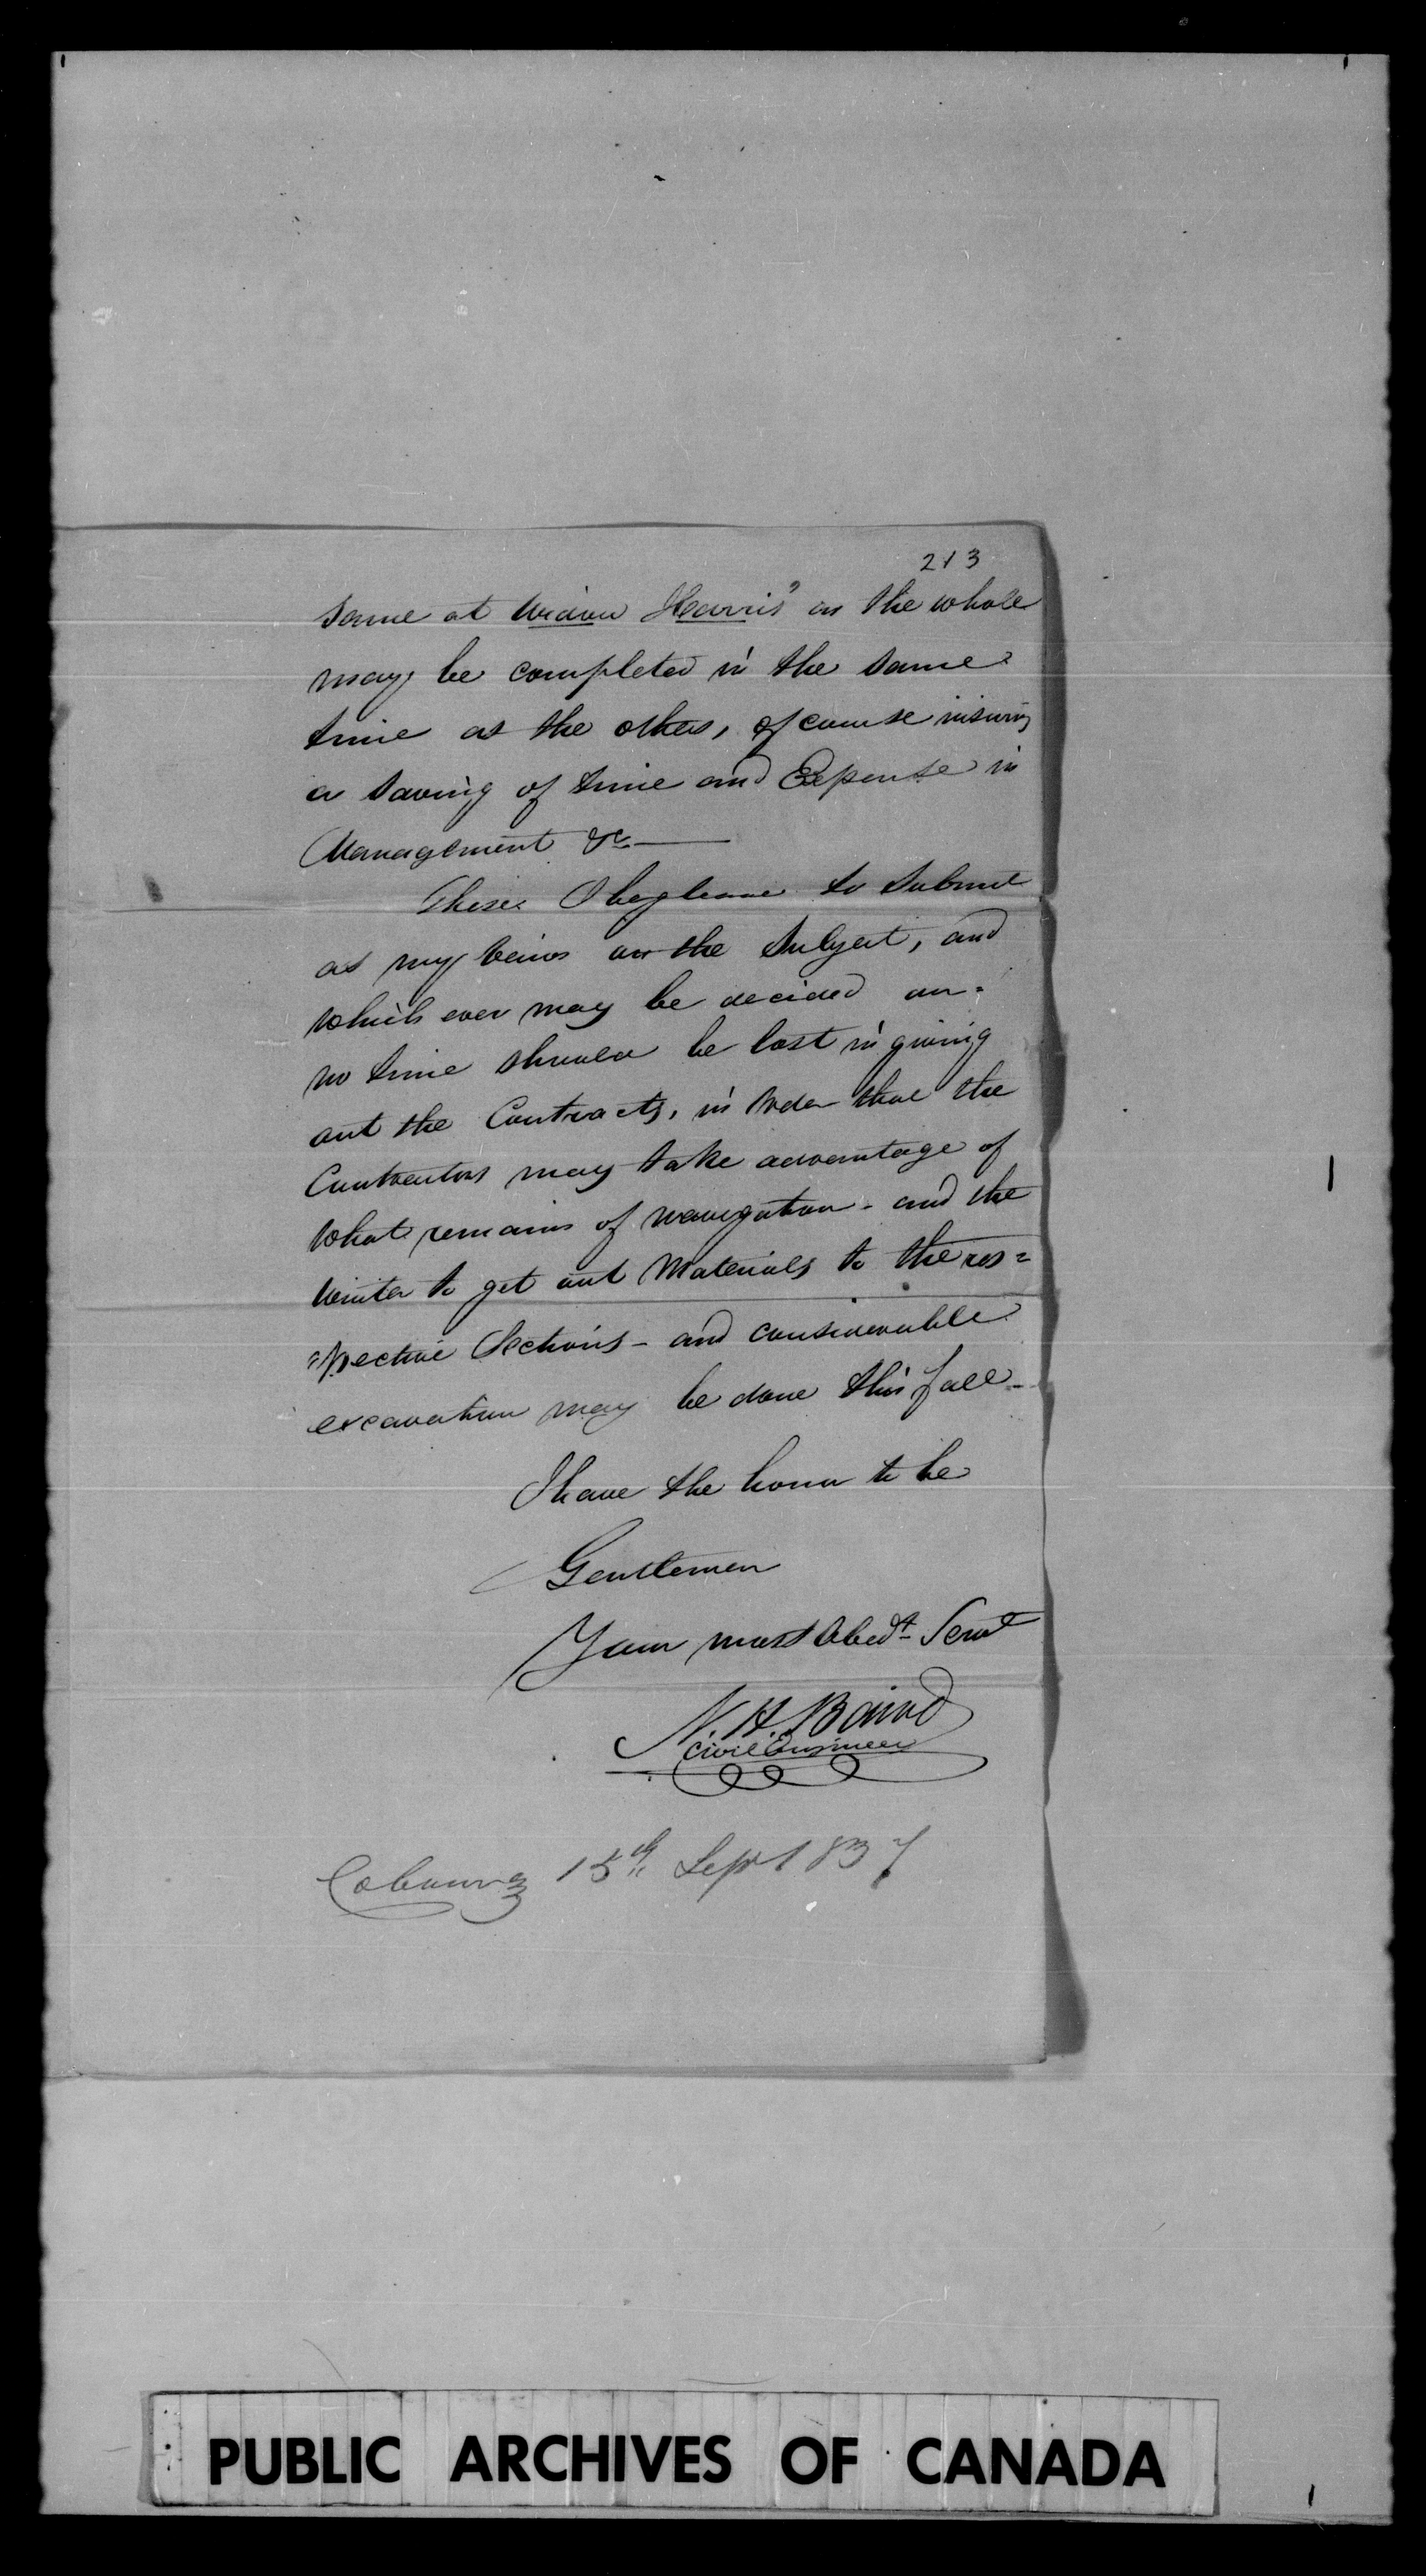 213
same at Widow Harris' as the whole
may be completed in the same
time as the others, of course insuring
a saving of time and Expense in
Management &c
These I beg leave to Submit
as my veiws on the Subject, and
which ever may be decided on =
no time should be lost in giving
out the Contracts, in order that the
Contractors may take advantage of
what remains of navigation - and the
winter to get out Materials to the res=
=pective Sections - and considerable
excavation may be done this fall -
I have the honor to be
Gentlemen
Your most Obedt Servt
N. H. Baird
Civil Engineer
Cobourg 15th Sept 1837
PUBLIC ARCHIVES OF CANADA